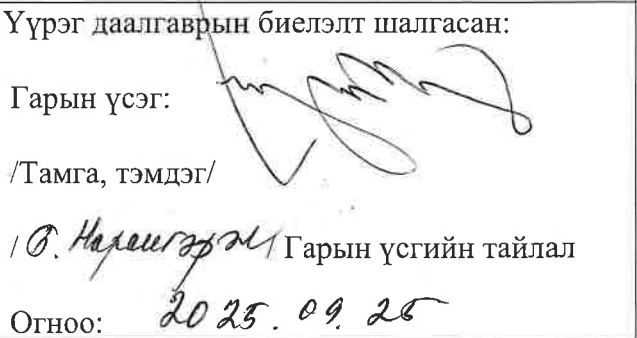 Үүрэг даалгаврын биелэлт шалгасан:
Гарын үсэг:
/Тамга, тэмдэг/
/Б. Нарангэрэл/ Гарын үсгийн тайлал
Огноо: 2025. 09. 25